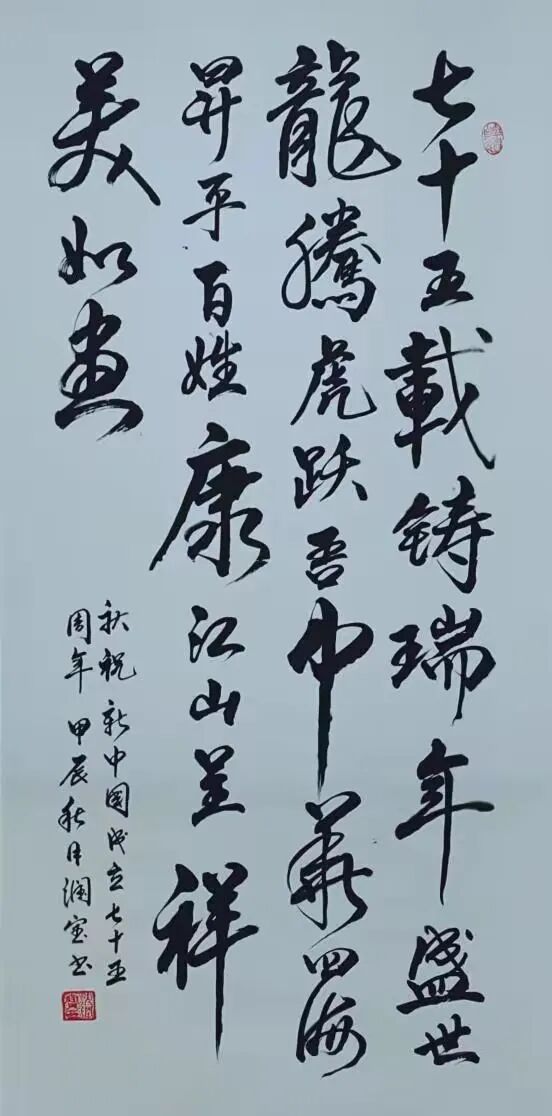 七十五載铸瑞年盛世
龍騰虎跃吾中華四海
昇平百姓康江山呈祥
美如画
欣祝新中国成立七十五
周年甲辰秋月润宝书